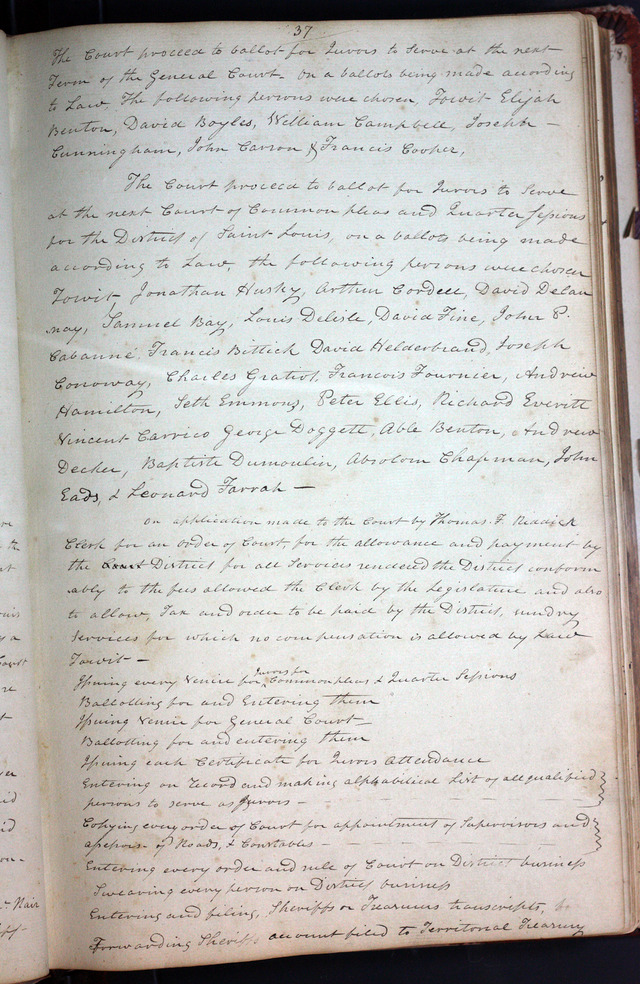 37
The Court proceed to ballot for Jurors to serve at the next
Term of the General Court. On a ballots being made according
to Law, The following persons were chosen, Towit Elijah
Benton, David Boyles, William Campbell, Joseph
Cunningham, John Carson & Francis Cooper,
The Court proceed to ballot for Jurors to serve
at the next Court of Common pleas and Quarter Sessions
for the District of Saint Louis, on a ballots being made
according to Law, the following persons were chosen
Towit Jonathan Husky, Arthur Cordell, David Delau
nay, Samuel Bay, Louis Delisle, David Fine, John P.
Cabanné, Francis Bittick David Helderbrand, Joseph
Conoway, Charles Gratiot, Francois Fournier, Andrew
Hamilton, Seth Emmons, Peter Ellis, Richard Everitt
Vincent Carrico George Doggett, Able Benton, Andrew
Decker, Baptiste Dumoulin, Absolom Chapman, John
Eads, & Leonard Farrah —
On application made to the Court by Thomas F. Riddick
Clerk for an order of Court, for the allowance and payment by
the Court District for all Services rendered the District conform
ably to the fees allowed the Clerk by the Legislature and also
to allow, Tax and order to be paid by the District, sundry
Services for which no compensation is allowed by Law
Towit —
Issuing every Venire for Jurors for Common pleas & Quarter Sessions
Ballotting for and Entering them
Issuing Venire for General Court
Ballotting for and entering them
Issuing each Certificate for Jurors Attendance
Entering on Record and making alphabitical List of all qualified
persons to serve as Jurors —
Copying every order of Court for appointment of Supervisors and
assessors of Roads, & Constables —
Entering every order and rule of Court on District business
Swearing every person on District business
Entering and filing, Sheriffs or Treasurers transcripts,
Forwarding Sheriffs account filed to Territorial Treasury